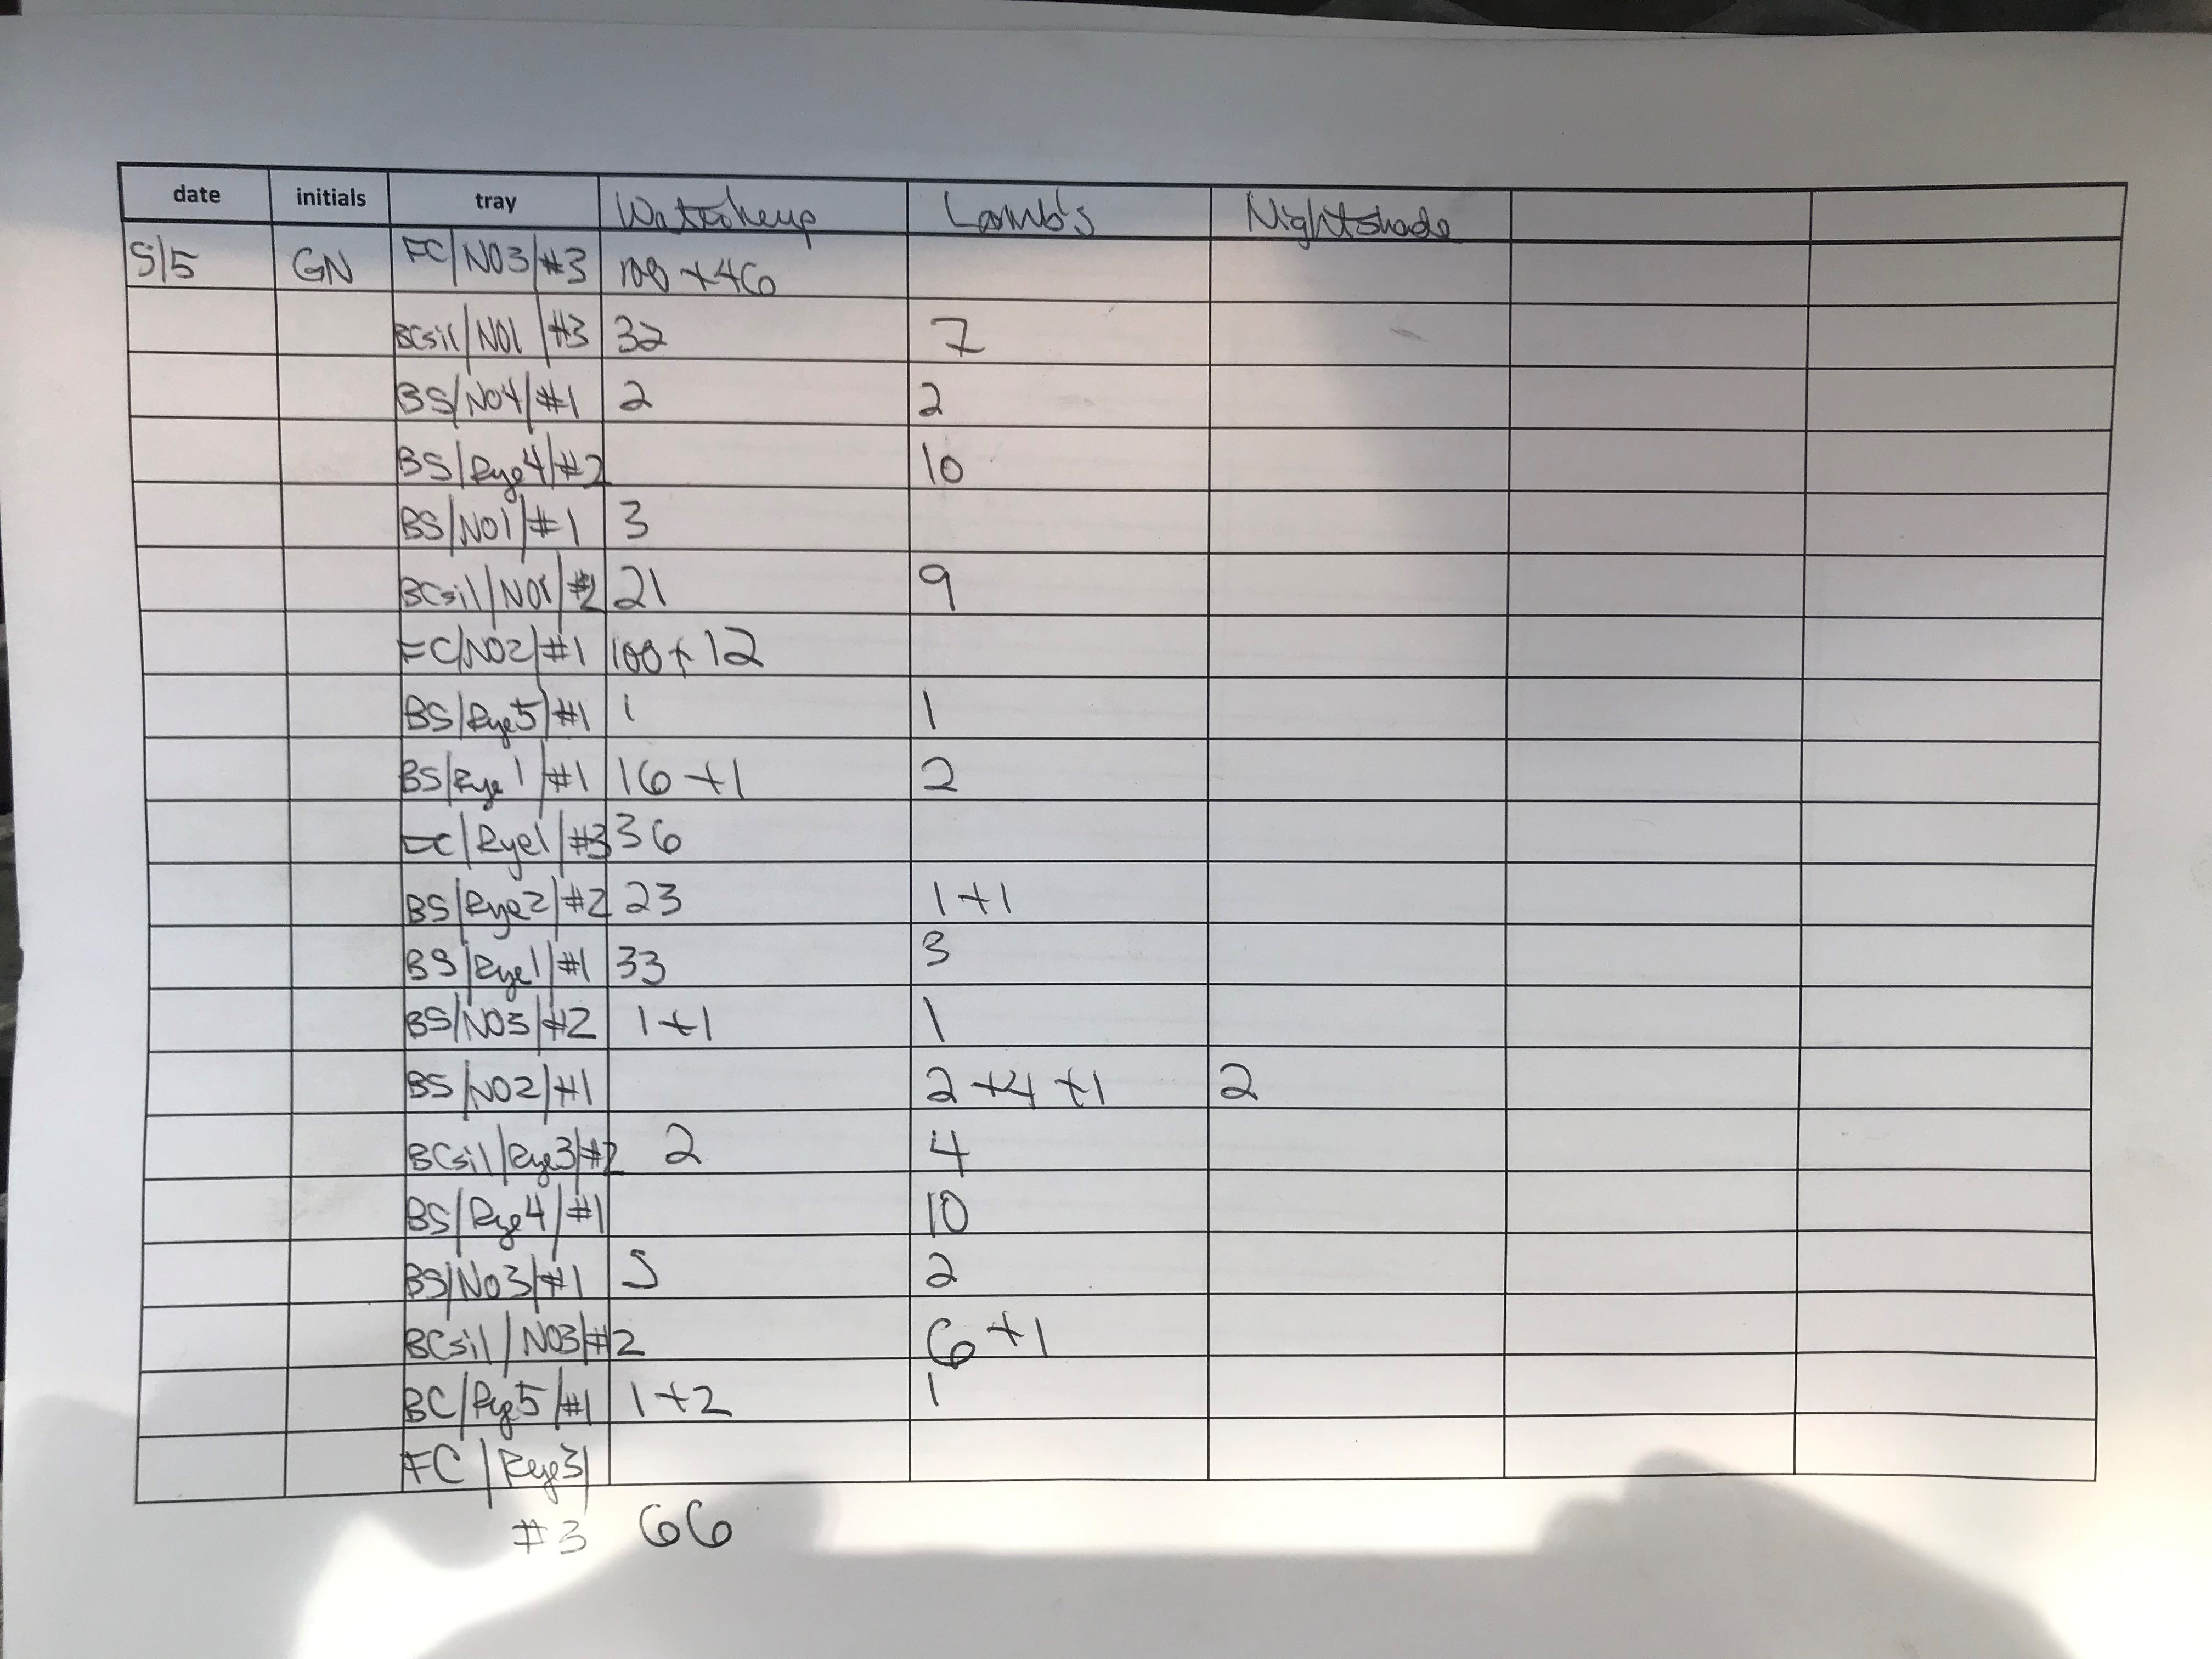 date initials tray Waterhemp Lamb's Nightshade
5/5 GN FC/NO3/#3 100 +46
BCsil/NO1/#3 32 7
BS/NO4/#1 2 2
BS/Rye4/#2 10
BS/NO1/#1 3
BCsil/NO1/#2 21 9
FC/NO2/#1 100+12
BS/Rye5/#1 1 1
BS/Rye1/#1 16+1 2
FC/Rye1/#3 36
BS/Rye2/#2 23 1+1
BS/Rye1/#1 33 3
BS/NO5/#2 1+1 1
BS/NO2/#1 2+4+1 2
BCsil/Rye3/#2 2 4
BS/Rye4/#1 10
BS/No3/#1 5 2
BCsil/NO3/#2 6+1
BC/Rye5/#1 1+2 1
FC/Rye3/
#3 66